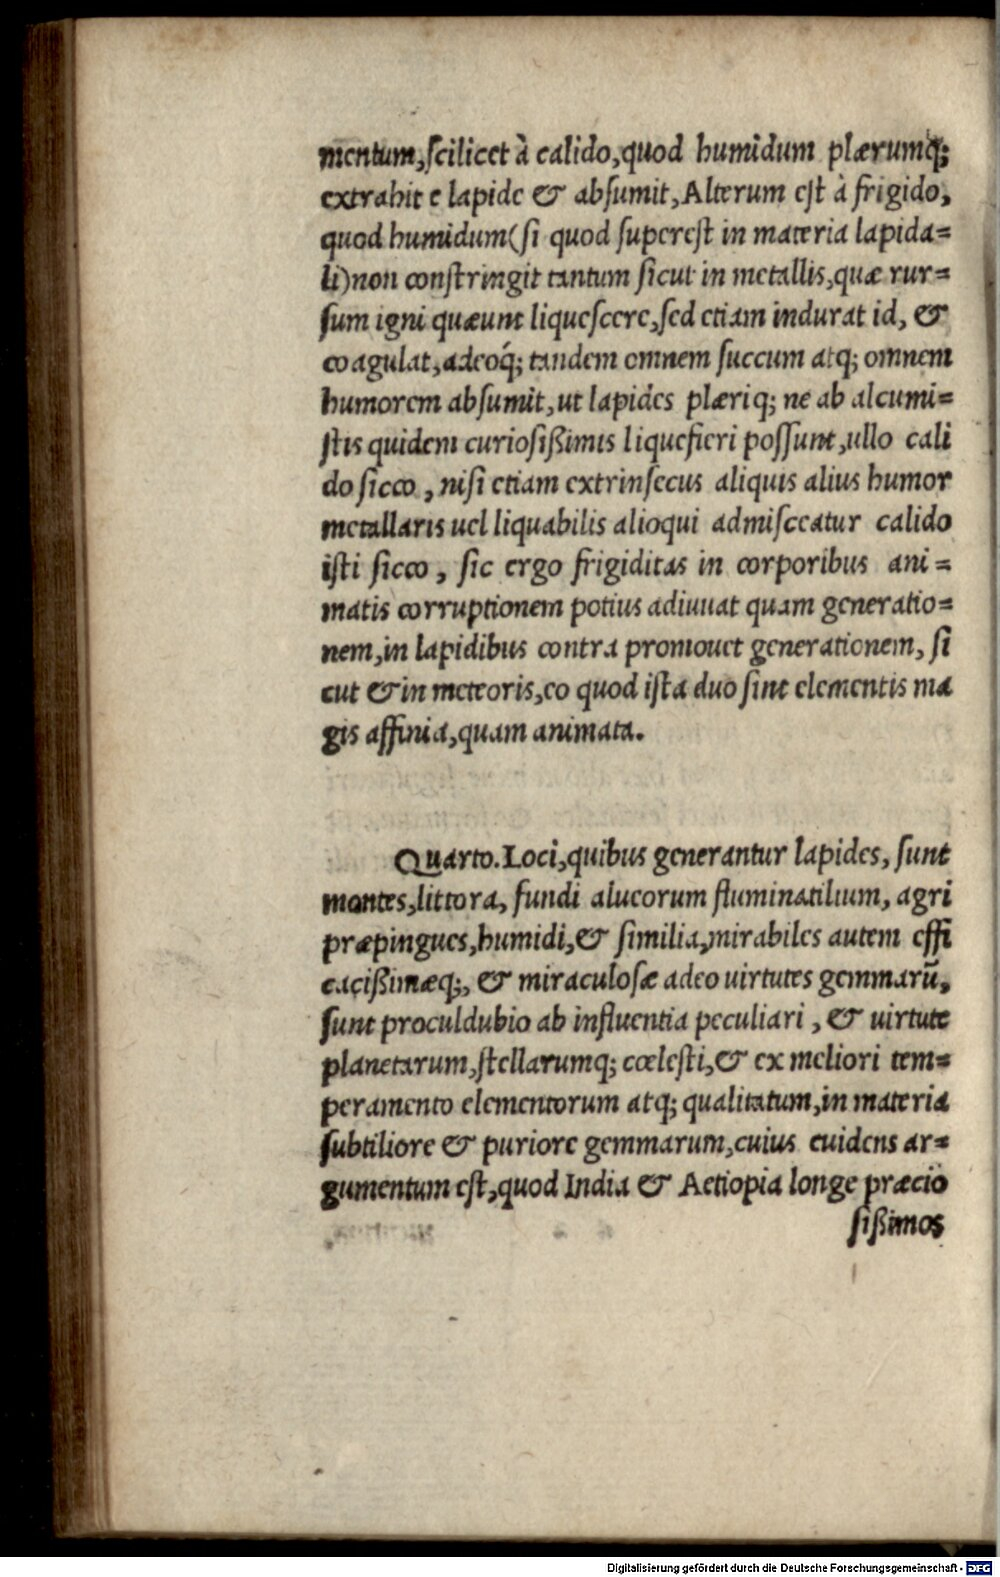 mentum,ſcilicet à calido,quod humidum plærumq;
extrahit e lapide & abſumit, Alterum eſt à frigido,
quod humidum(ſi quod ſupereſt in materia lapida=
li)non conſtringit tantum ſicut in metallis,quæ rur=
ſum igni quæunt liqueſcere,ſed etiam indurat id, &
coagulat,adeoq́; tandem omnem ſuccum atq; omnem
humorem abſumit,ut lapides plæriq; ne ab alcumi=
ſtis quidem curioſißimis liquefieri poſſunt,ullo cali
do ſicco , niſi etiam extrinſecus aliquis alius humor
metallaris uel liquabilis alioqui admiſceatur calido
iſti ſicco , ſic ergo frigiditas in corporibus ani =
matis corruptionem potius adiuuat quam generatio=
nem,in lapidibus contra promouet generationem, ſi
cut & in meteoris,eo quod iſta duo ſint elementis ma
gis affinia,quam animata.
Quarto. Loci,quibus generantur lapides, ſunt
montes,littora, fundi alueorum fluminatilium, agri
præpingues,humidi,& ſimilia,mirabiles autem effi
caciſßimæq;, & miraculoſæ adeo uirtutes gemmarū,
ſunt proculdubio ab influentia peculiari , & uirtute
planetarum,ſtellarumq; cœleſti,& ex meliori tem=
peramento elementorum atq; qualitatum,in materia
ſubtiliore & puriore gemmarum,cuius euidens ar=
gumentum eſt,quod India & Aetiopia longe præcio
ſißimos
Digitalisierung gefördert durch die Deutsche Forschungsgemeinschaft - DFG